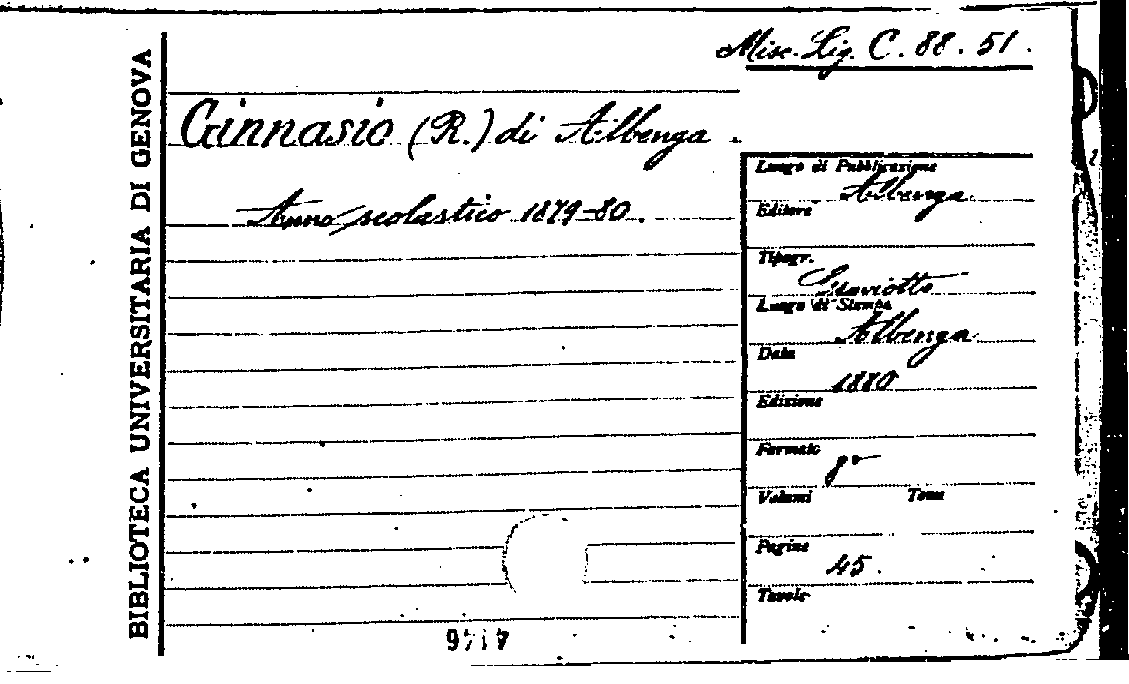 BIBLIOTECA UNIVERSITARIA DI GENOVA
Misc. Lig. C. 88. 51.
Ginnasio (R.) di Albenga.
Anno scolastico 1879-80.
Luogo di Pubblicazione
Albenga
Editore
Tipogr.
Craviotto
Luogo di Stampa
Albenga
Data
1880
Edizione
Formato
8º
Volumi Tomi
Pagine
45.
Tavole